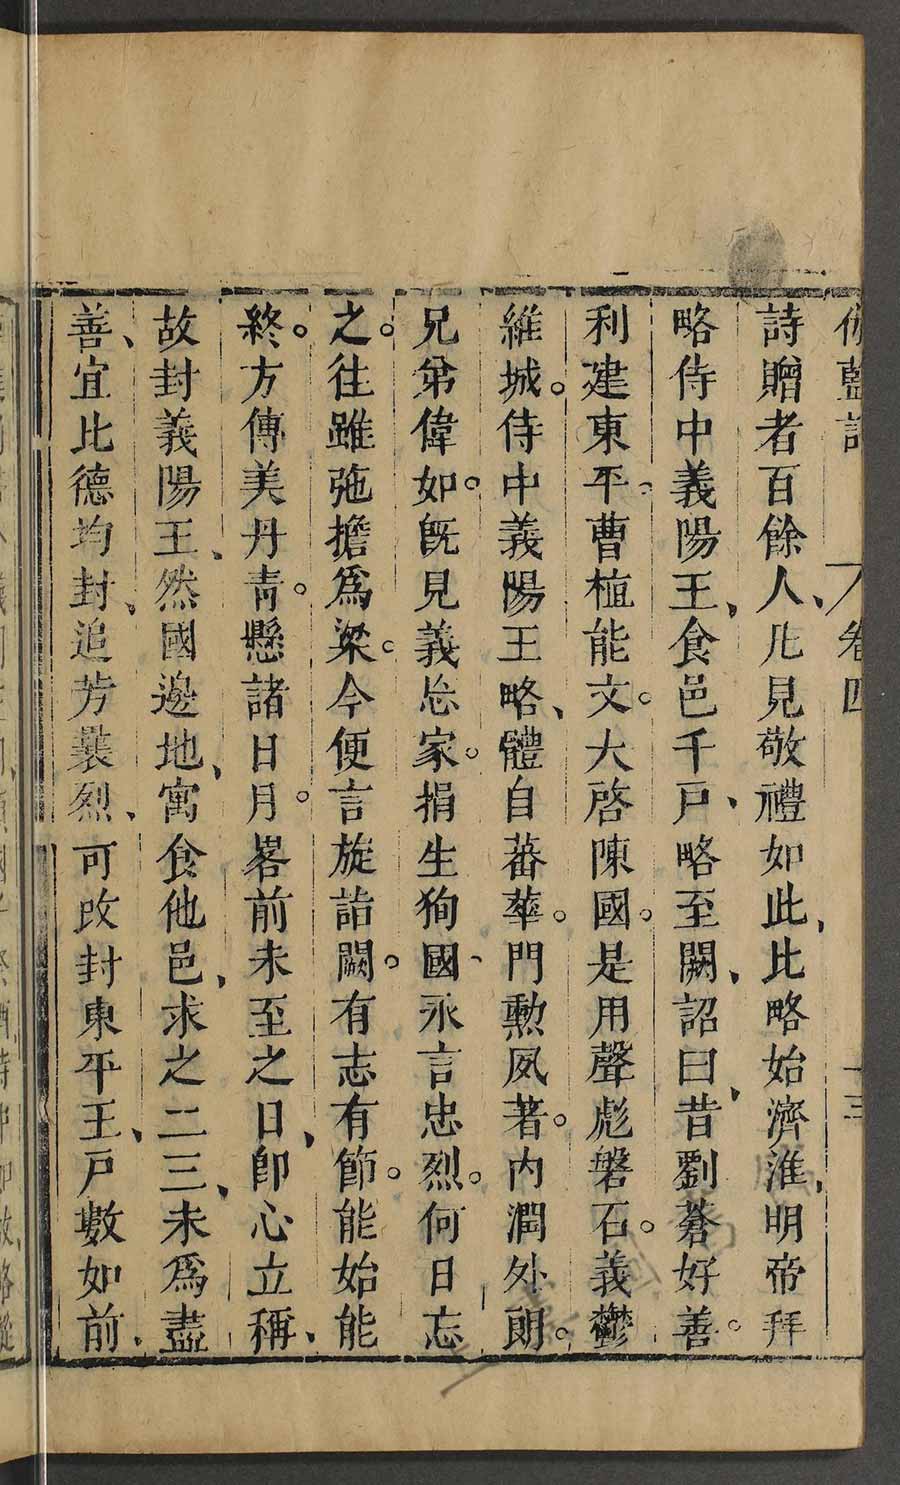 伽藍記 卷四 十三
詩贈者百餘人、凡見敬禮如此、比略始濟淮、明帝拜
略侍中義陽王、食邑千戶、略至闕、詔曰、昔劉蒼好善。
利建東平、曹植能文。大啓陳國。是用聲彪磐石。義鬱
維城。侍中義陽王略、體自蕃華。門勲夙著。内潤外朗。
兄弟偉如。旣見義忘家。捐生狥國、永言忠烈。何日忘
之。往雖弛擔爲梁。今便言旋詣闕。有志有節。能始能
終。方傳美丹靑。懸諸日月。畧前未至之日、卽心立稱、
故封義陽王、然國邊地、寓食他邑、求之二三、未爲盡
善、宜比德均封、追芳曩烈、可改封東平王、戶數如前、